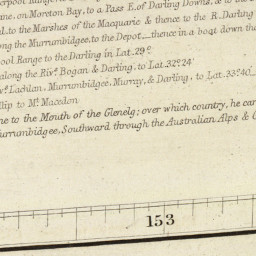 ane, on Moreton Bay, to a Pass E. of Darling Downs, & to
to the Marshes of the Macquarie & thence to the R. Darling
ong the Murrumbidgee, to the Depot, _ thence in a boat down the
ool Range to the Darling in Lat. 29°
along the Rivs. Bogan & Darling, to Lat. 32°.24'
Lachlan, Murrumbidgee, Murray, & Darling, to Lat. 33°.40
llip to Mt. Macedon
ne to the Mouth of the Glenelg; over which country, he car
urrumbidgee, Southward through the Australian Alps &
153